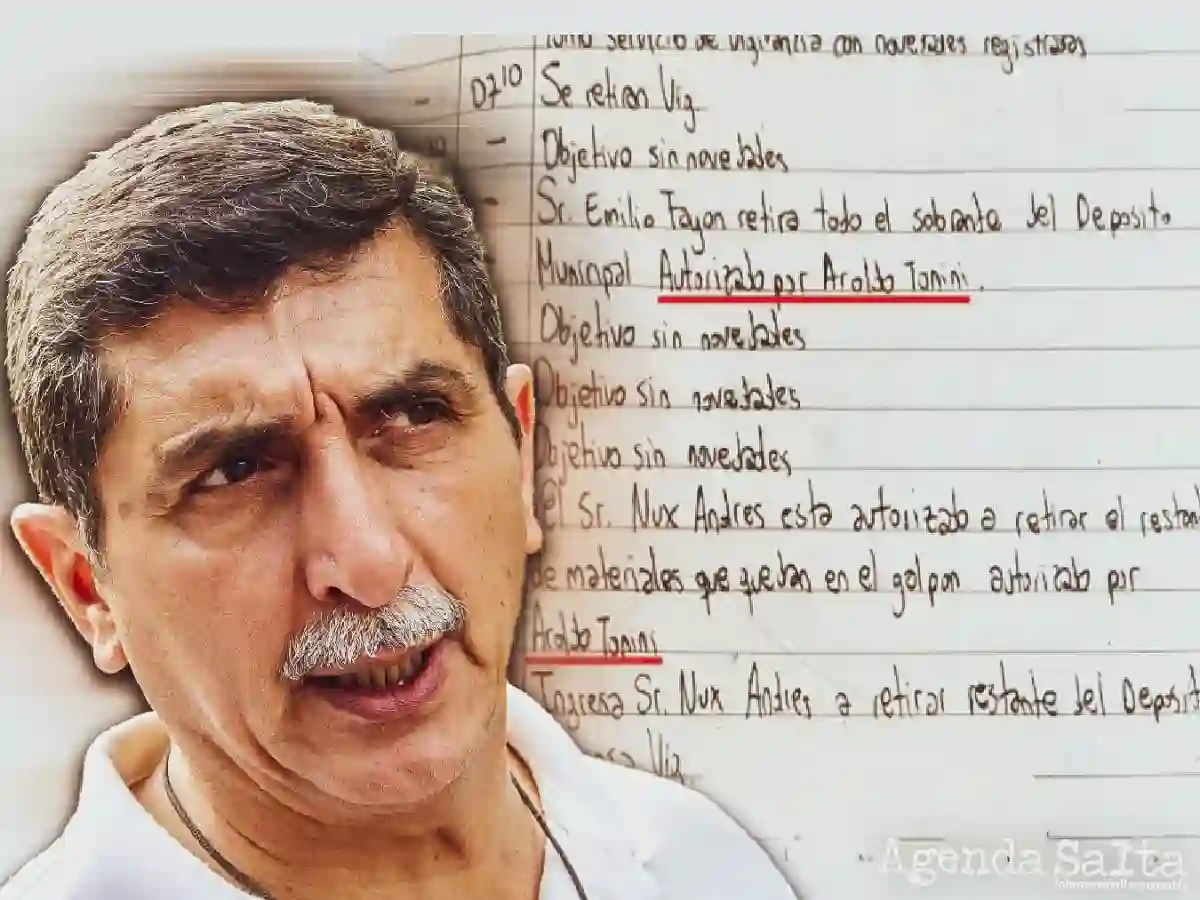 Tomo servicio de vigilancia con novedades registradas
07¹⁰ Se retira Viz
- Objetivo sin novedades
- Sr. Emilio Fayon retira todo el sobrante del Deposito
Municipal Autorizado por Araldo Tonini.
Objetivo sin novedades
Objetivo sin novedades
Objetivo sin novedades
el Sr. Nux Andres esta autorizado a retirar el restan
de materiales que quedan en el galpon autorizado por
Araldo Tonini
Ingresa Sr. Nux Andres a retirar restante del Deposit
Viz
Agenda Salta